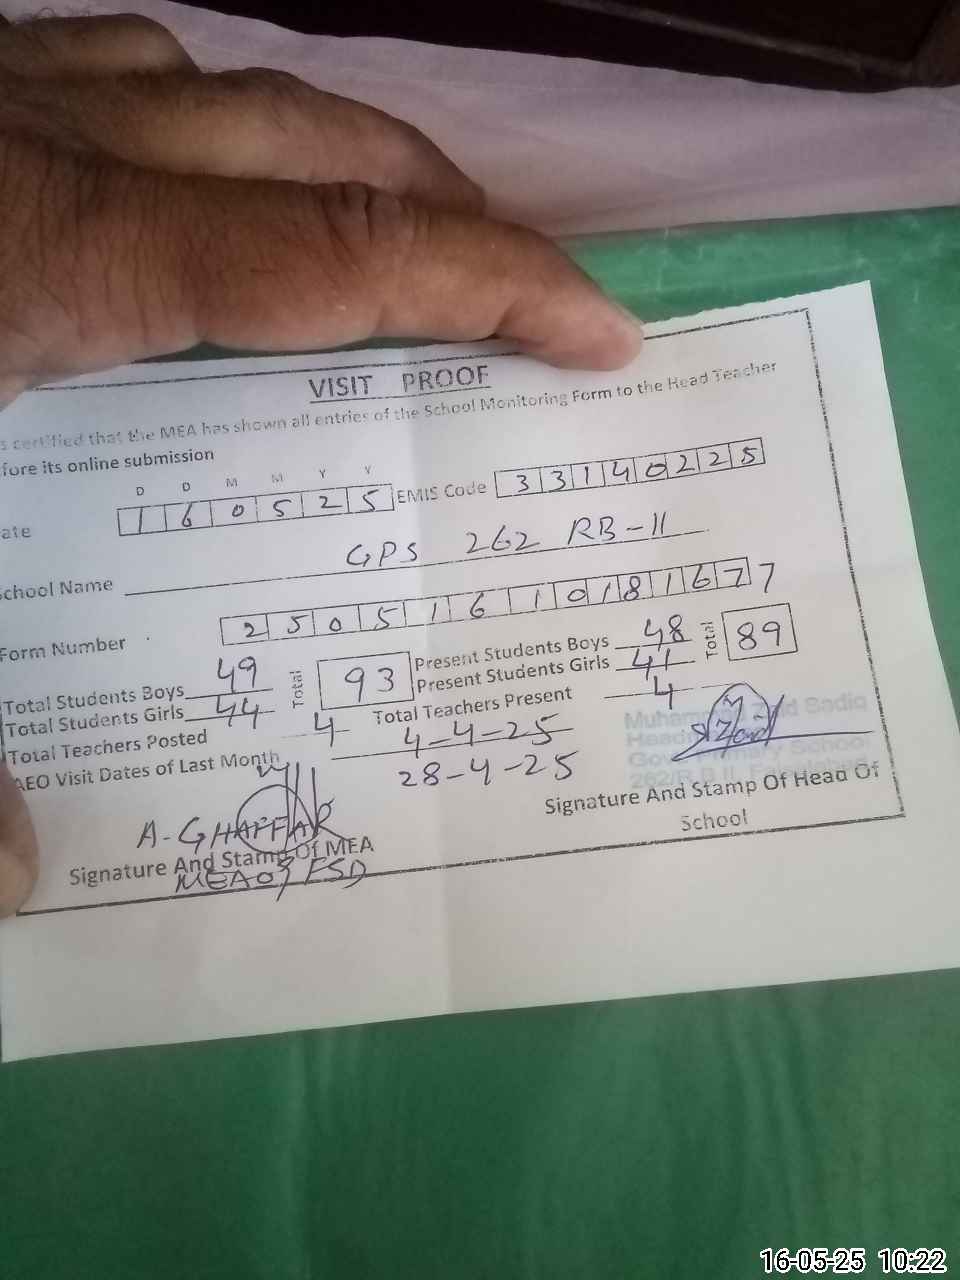 VISIT PROOF
s certified that the MEA has shown all entries of the School Monitoring Form to the Head Teacher
fore its online submission
D D M M Y Y
ate 1 6 0 5 2 5 EMIS Code 3 3 1 4 0 2 2 5
School Name GPS 262 RB-II
Form Number 2 5 0 5 1 6 1 0 1 8 1 6 7 7
Total Students Boys 49 Total 93 Present Students Boys 48 Total 89
Total Students Girls 44 Present Students Girls 41
Total Teachers Posted 4 Total Teachers Present 4
AEO Visit Dates of Last Month 4-4-25
28-4-25
Sadiq
School
262/R.B II
A-GHAFFAR
Signature And Stamp Of MEA
MEA FSD
Signature And Stamp Of Head Of
School
16-05-25 10:22